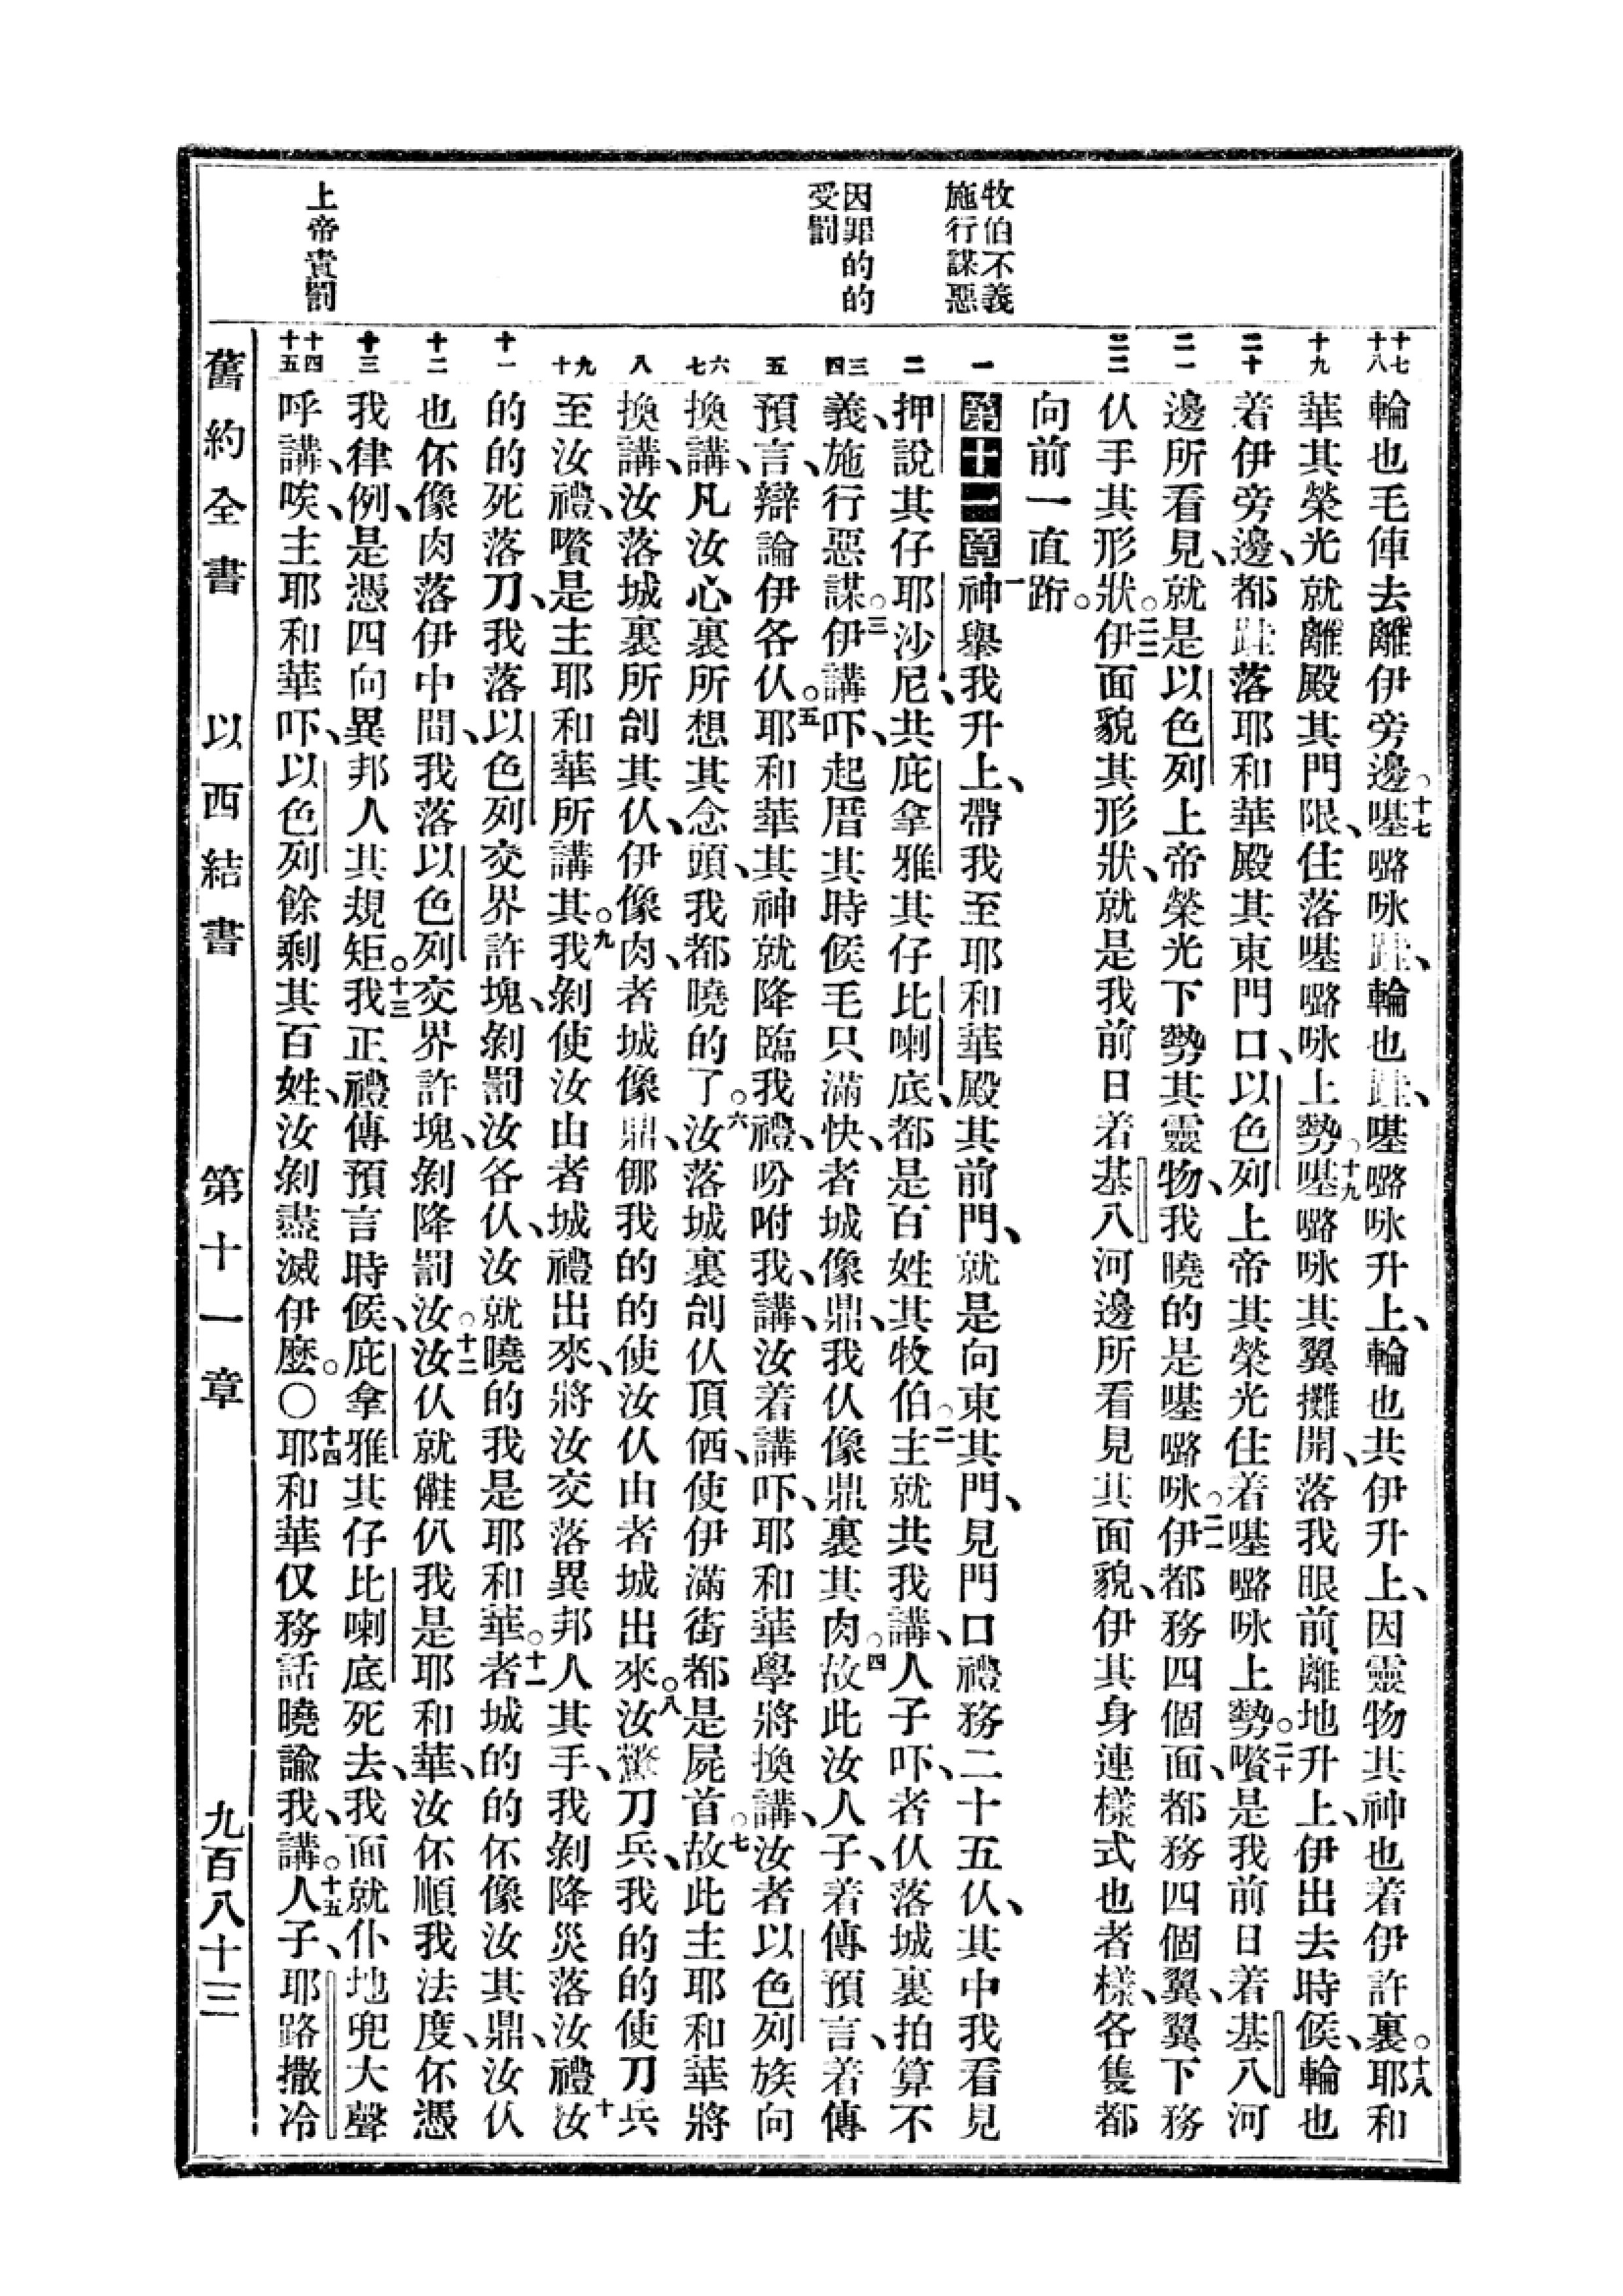 牧伯不義
施行謀惡
因罪的的
受罰
上帝責罰
十七
十八
十九
二十
二一
二二
一
二
三
四
五
六
七
八
九
十
十一
十二
十三
十四
十五
輪也毛俥去離伊旁邊。十七𡅏嚕咏跬、輪也跬、𡅏嚕咏升上、輪也共伊升上、因靈物其神也着伊許裏。十八耶和
華其榮光就離殿其門限、住落𡅏嚕咏上勢。十九𡅏嚕咏其翼攤開、落我眼前離地升上、伊出去時候、輪也
着伊旁邊、都跬落耶和華殿其東門口、以色列上帝其榮光住着𡅏嚕咏上勢。二十㗷是我前日着基八河
邊所看見、就是以色列上帝榮光下勢其靈物、我曉的是𡅏嚕咏。二一伊都務四個面、都務四個翼、翼下務
仈手其形狀。二二伊面貌其形狀、就是我前日着基八河邊所看見其面貌、伊其身連樣式也者樣、各隻都
向前一直跴。
第十一章一神舉我升上、帶我至耶和華殿其前門、就是向東其門、見門口禮務二十五仈、其中我看見
押說其仔耶沙尼、共庇拿雅其仔比喇底、都是百姓其牧伯。二主就共我講、人子吓、者仈落城裏拍算不
義、施行惡謀。三伊講吓、起厝其時候毛只滿快、者城像鼎、我仈像鼎裏其肉。四故此汝人子、着傳預言、着傳
預言、辯論伊各仈。五耶和華其神就降臨我禮、吩咐我、講、汝着講吓、耶和華學將換講、汝者以色列族向
換講、凡汝心裏所想其念頭、我都曉的了。六汝落城裏刣仈頂㑚、使伊滿街都是屍首。七故此主耶和華將
換講、汝落城裏所刣其仈、伊像肉、者城像鼎、𠋥我的的使汝仈由者城出來。八汝驚刀兵、我的的使刀兵
至汝禮、㗷是主耶和華所講其。九我剝使汝由者城禮出來、將汝交落異邦人其手、我剝降災落汝禮十汝
的的死落刀、我落以色列交界許塊、剝罰汝各仈、汝就曉的我是耶和華。十一者城的的伓像汝其鼎、汝仈
也伓像肉落伊中間、我落以色列交界許塊、剝降罰汝。十二汝仈就𠊎仈我是耶和華、汝伓順我法度、伓憑
我律例、是憑四向異邦人其規矩。十三我正禮傳預言時候、庇拿雅其仔比喇底死去、我面就仆地兜大聲
呼講、唉、主耶和華吓、以色列餘剩其百姓、汝剝盡滅伊麼。〇十四耶和華仅務話曉諭我、講。十五人子、耶路撒冷
舊約全書 以西結書 第十一章 九百八十三